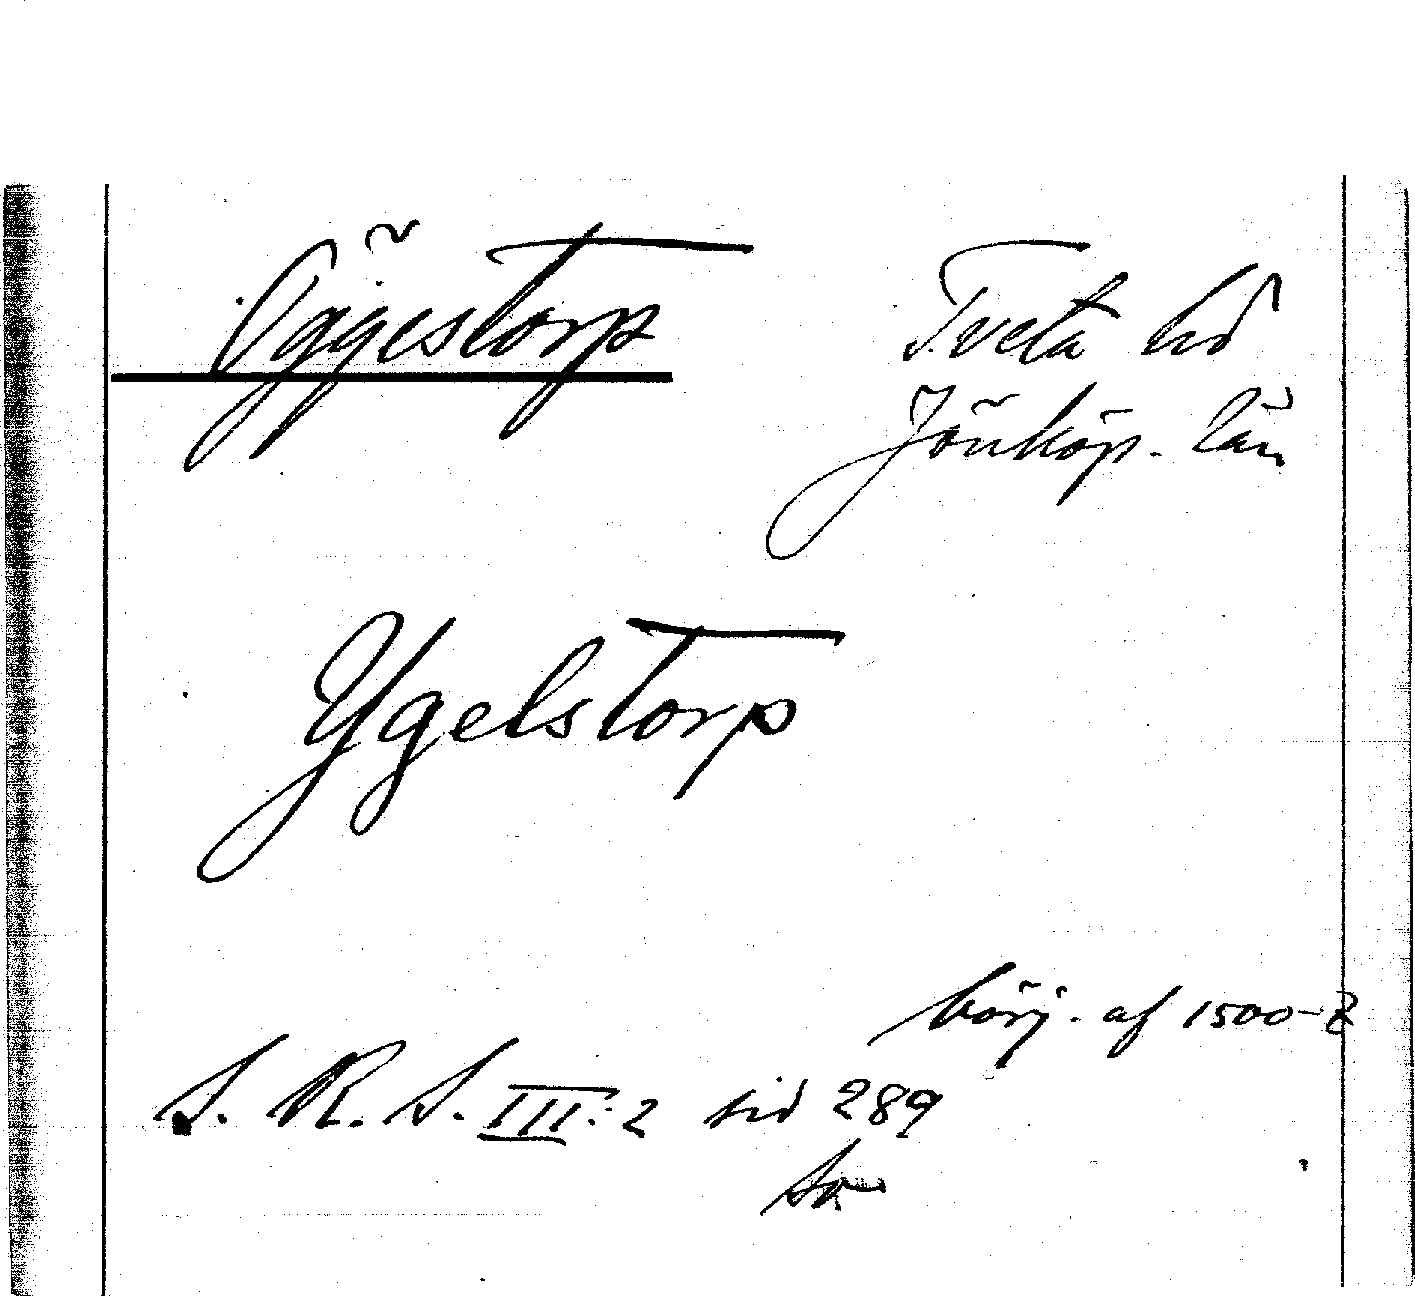 Öggestorp
Tveta hd
Jönköp. län
Ygelstorp
börj. af 1500-t
S. R. S. III:2 sid 289